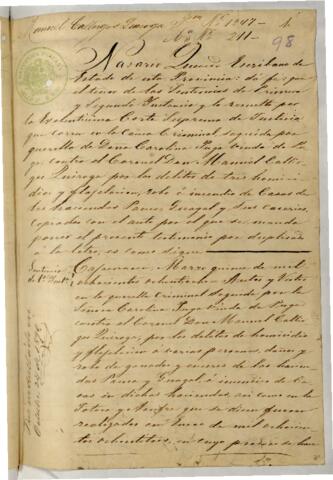 Manuel Callirgos Quiroga
Nº 1247 - 1
Nº 211 -
98
Navarro Escribano de
Estado de esta Provincia: doi fe que
el tenor de las Sentencias de Primera
y Segunda Instancia y lo resuelto por
la Excelentisima Corte Suprema de Justicia
que corre en la Causa Criminal seguida por
querella de Doña Carolina Puga viuda de Pu
ga contra el Coronel Don Manuel Callir
gos Quiroga por los delitos de tres homici
dios y flajelacion, robo é incendio de Casas de
las haciendas Pauca Guagal y sus caserios
copiadas con el auto por el que se manda
poner el presente testimonio por duplicado
á la letra, es como sigue
Sentencia
de 1ª Inst.ª
Cajamarca Marzo quince de mil
ochocientos ochentiocho Autos y Vistos
en la querella Criminal seguida por la
Señora Carolina Puga viuda de Puga
contra el Coronel Don Manuel Callir
gos Quiroga, por los delitos de homicidio
y flajelacion á varias personas, daños y
robo de ganado y enseres de las hacien
das Pauca y Guagal é incendio de Ca
sas en dichas haciendas, asi como en la
y que se dicen fueron
realizados en Enero de mil ochocien
tos ochentitres, en cuyo proceso se han